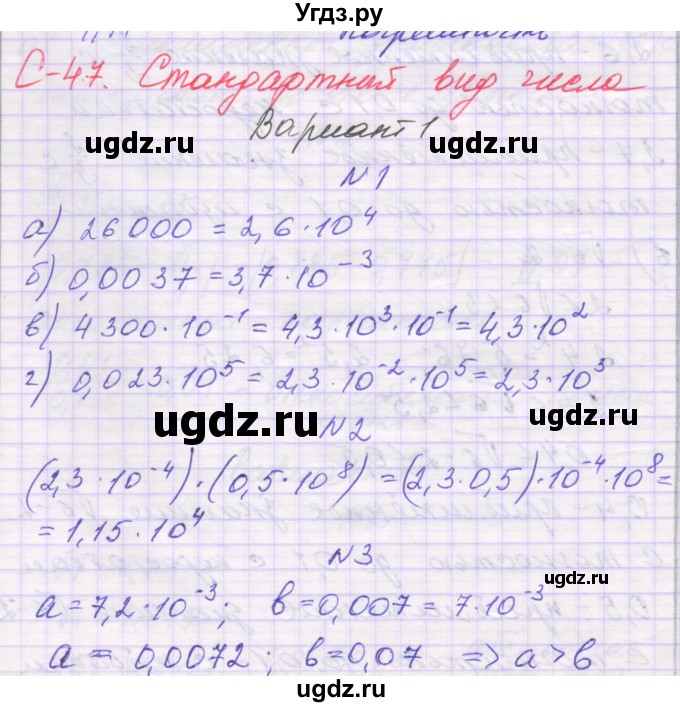 Угдз.ру
погрешность
С-47. Стандартный вид числа
Вариант 1
ugdz.ru ugdz.ru
№1
а) 26 000 = 2,6 · 10⁴
б) 0,0037 = 3,7 · 10⁻³
ugdz.ru
в) 4 300 · 10⁻¹ = 4,3 · 10³ · 10⁻¹ = 4,3 · 10²
г) 0,023 · 10⁵ = 2,3 · 10⁻² · 10⁵ = 2,3 · 10³
ugdz.ru ugdz.ru
№2
(2,3 · 10⁻⁴) · (0,5 · 10⁸) = (2,3 · 0,5) · 10⁻⁴ · 10⁸ =
= 1,15 · 10⁴
ugdz.ru
№3
ugdz.ru
a = 7,2 · 10⁻³; b = 0,007 = 7 · 10⁻³
a = 0,0072; b = 0,07 => a > b
ugdz.ru